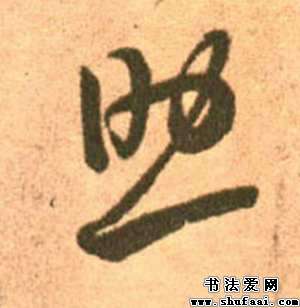 照
书法爱网
www.shufaai.com